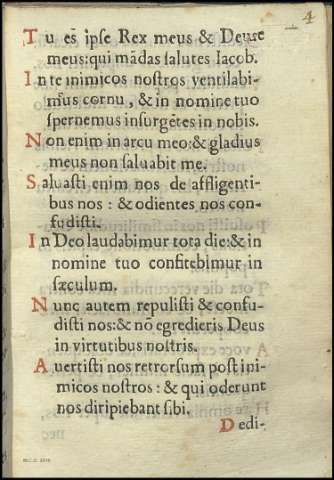 4
Tu es̃ ipse Rex meus & Deus
meus: qui mãdas salutes Iacob.
In te inimicos nostros ventilabi-
m̃us cornu, & in nomine tuo
spernemus insurgẽtes in nobis.
Non enim in arcu meo: & gladius
meus non saluabit me.
Saluasti enim nos de affligenti-
bus nos: & odientes nos con-
fudisti.
In Deo laudabimur tota die: & in
nomine tuo confitebimur in
sæculum.
Nunc autem repulisti & confu-
disti nos: & nõ egredieris Deus
in virtutibus nostris.
Auertisti nos retrorsum post ini-
micos nostros: & qui oderunt
nos diripiebant sibi.
Dedi-